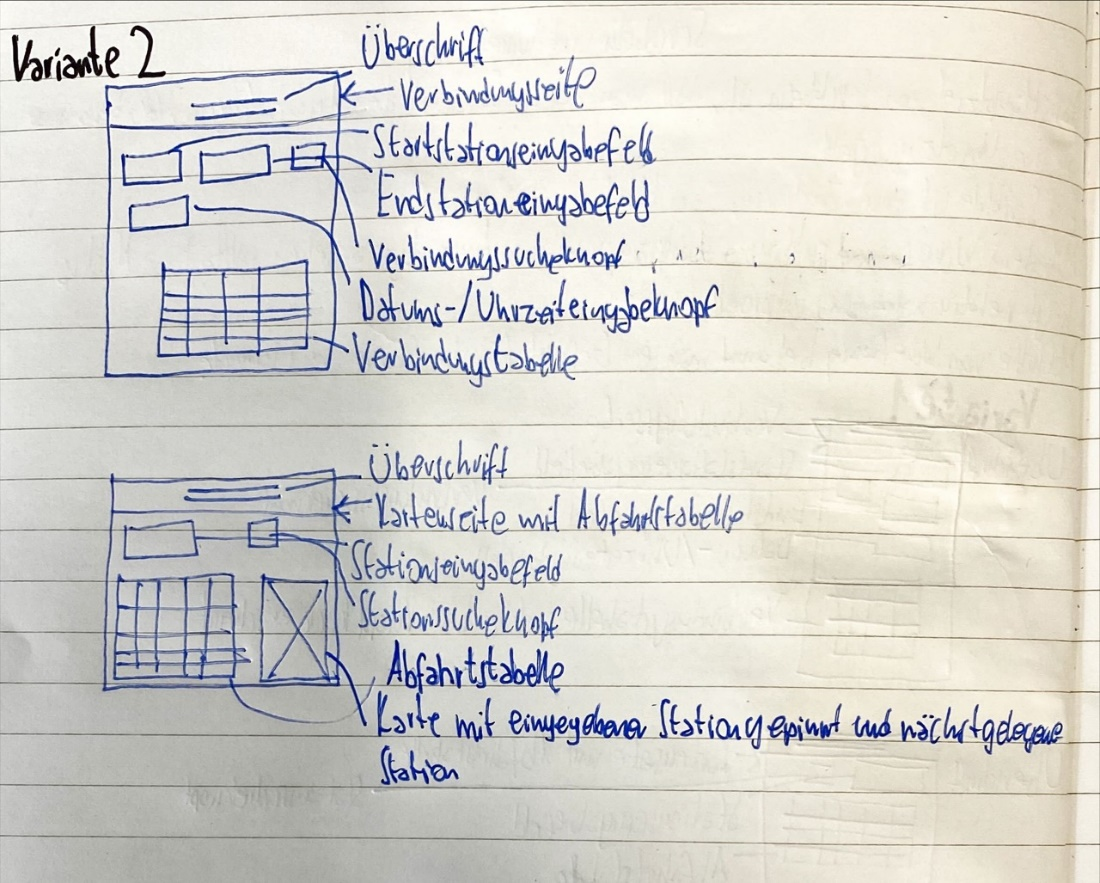 Variante 2
Überschrift
Verbindungsseite
Startstationseingabefeld
Endstationeingabefeld
Verbindungssucheknopf
Datums-/Uhrzeiteingabeknopf
Verbindungstabelle
Überschrift
Kartenseite mit Abfahrtstabelle
Stationseingabefeld
Stationssucheknopf
Abfahrtstabelle
Karte mit eingegebener Station gepinnt und nächstgelegene
Station